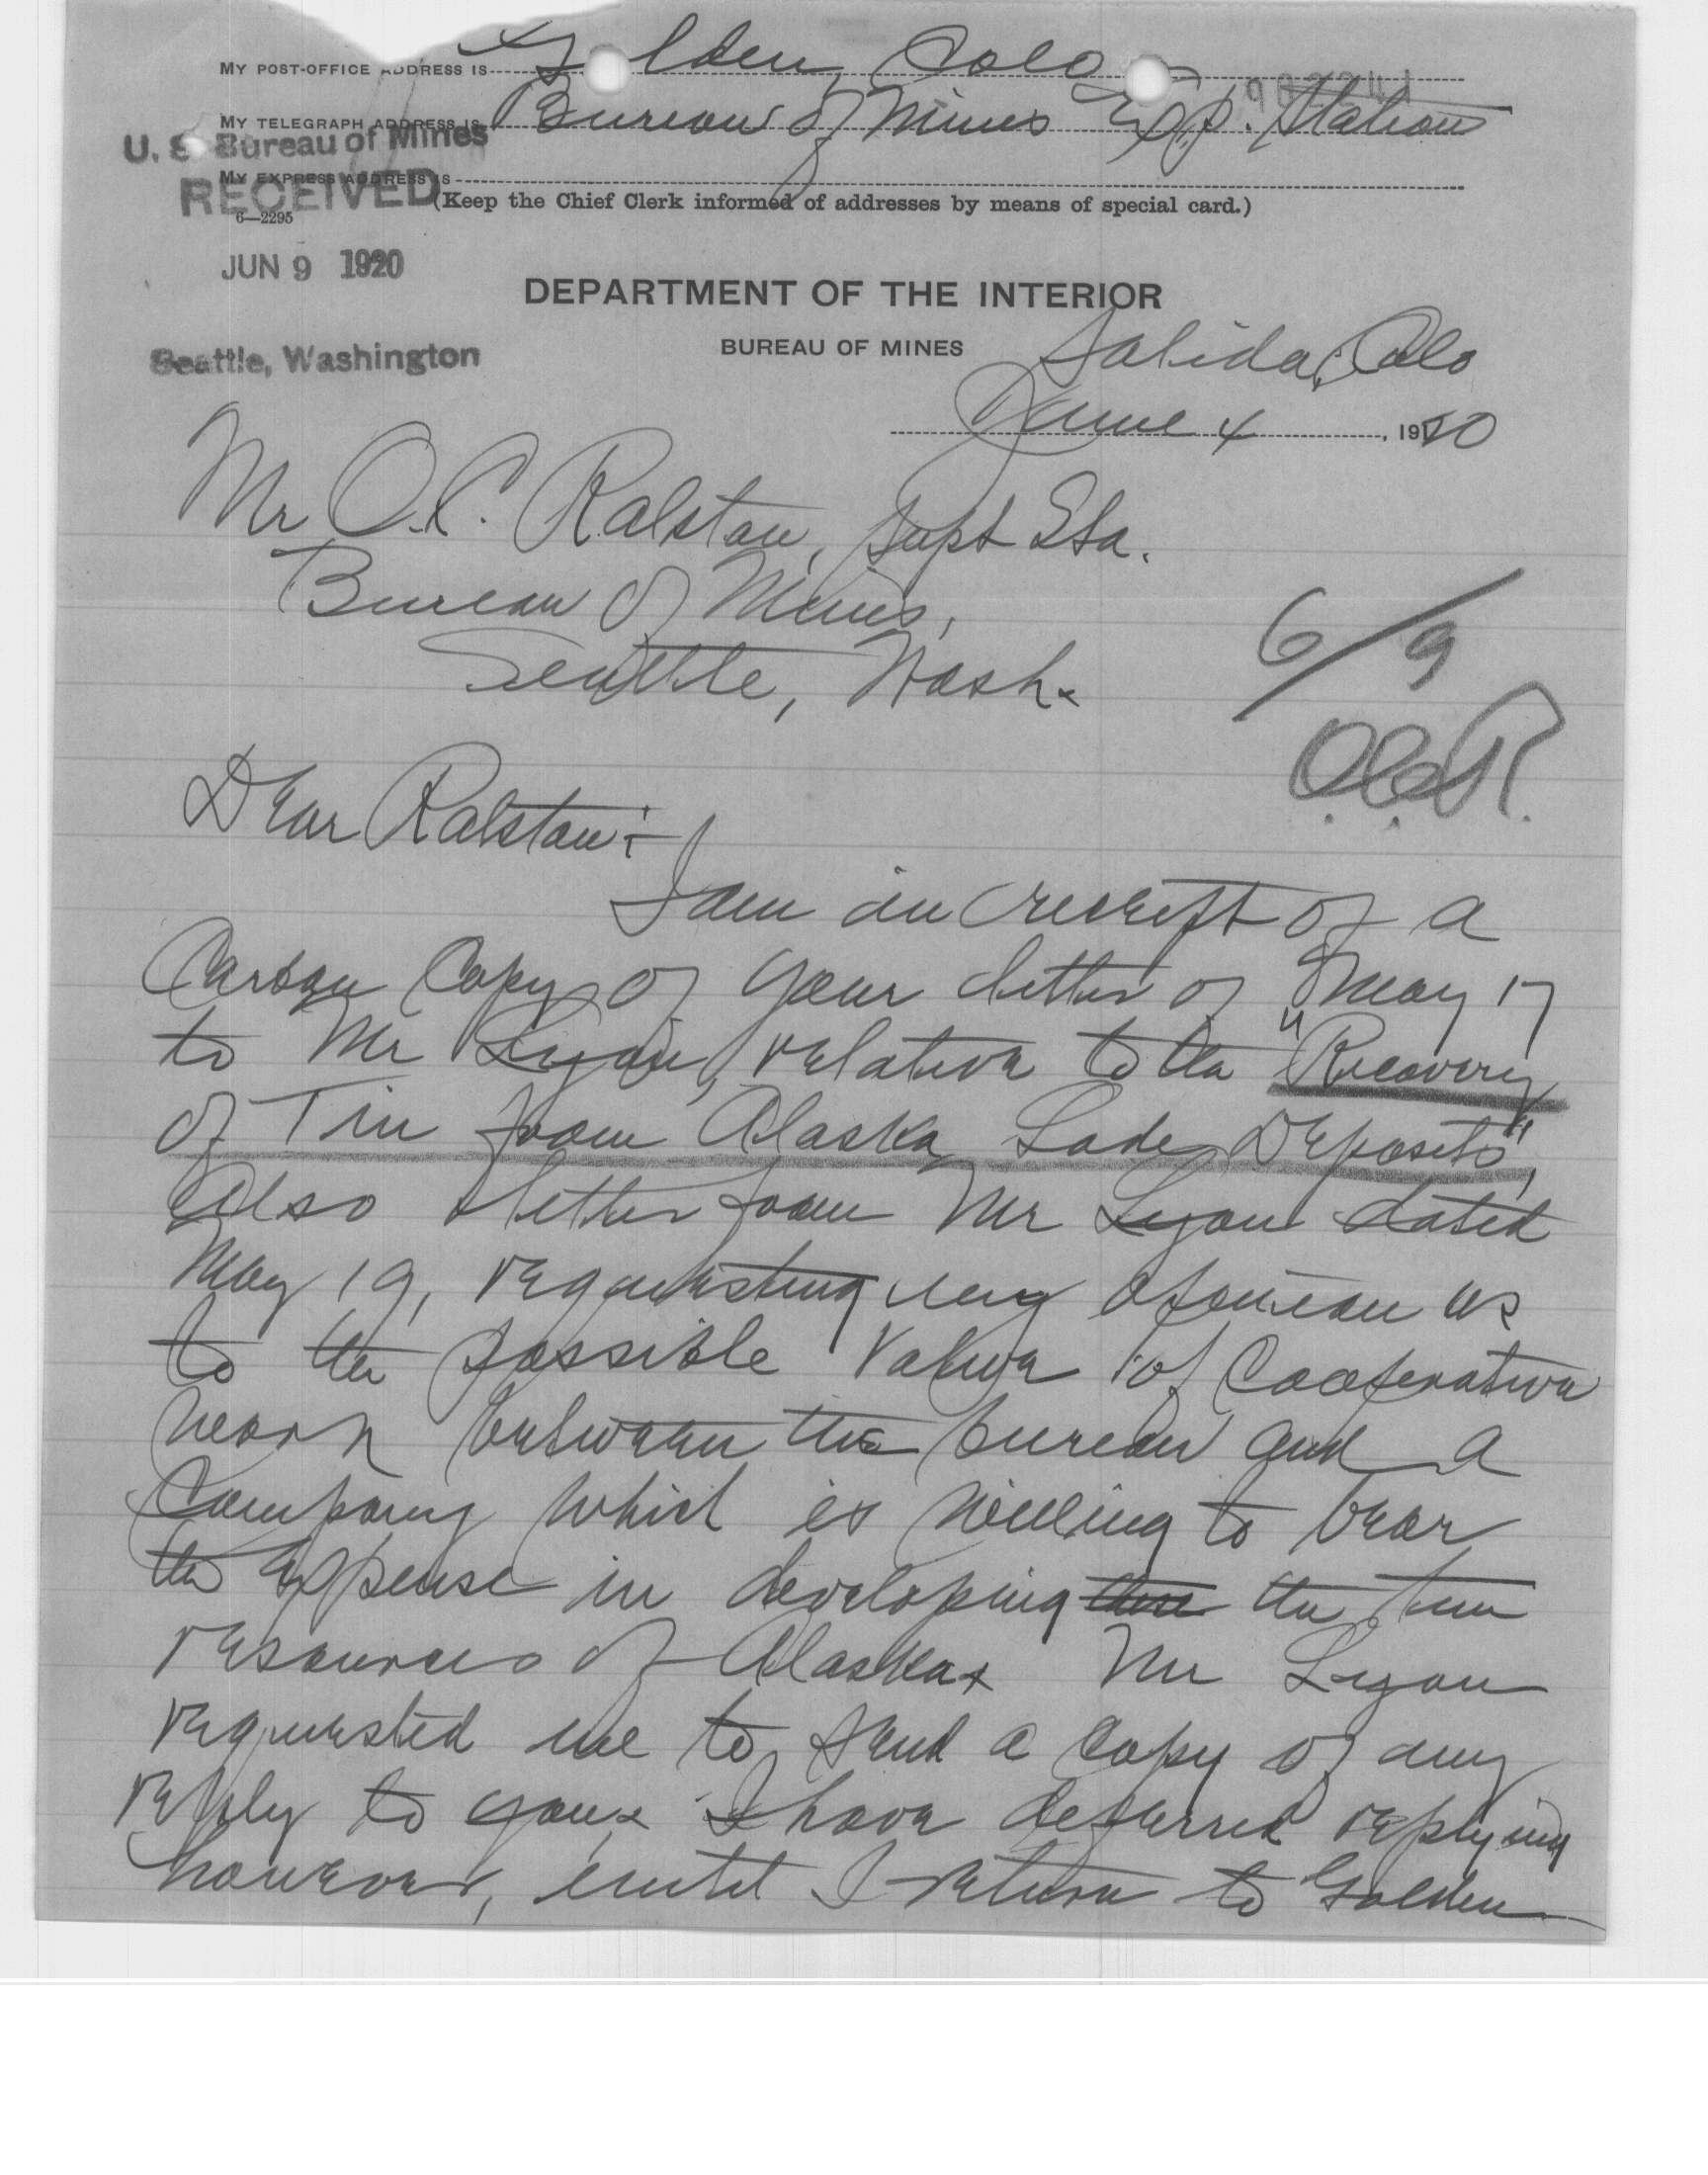 MY POST-OFFICE ADDRESS IS Golden, Colo
MY TELEGRAPH ADDRESS IS Bureau of Mines Exp. Station
U. S. Bureau of Mines
MY EXPRESS ADDRESS IS
RECEIVED
(Keep the Chief Clerk informed of addresses by means of special card.)
6—2295
JUN 9 1920
DEPARTMENT OF THE INTERIOR
BUREAU OF MINES
Seattle, Washington
Salida, Colo
June 4, 1920
Mr O.C. Ralston, Supt Sta.
Bureau of Mines,
Seattle, Wash.
6/9
O.C.R.
Dear Ralston:-
I am in receipt of a
Carbon Copy of your letter of May 17
to Mr Lyon, relative to the "Recovery
of Tin from Alaska Lode Deposits",
Also letter from Mr Lyon dated
May 19, requesting my opinion as
to the possible value of Cooperative
work between the bureau and a
Company which is willing to bear
the expense in developing the tin
resources of Alaska. Mr Lyon
requested me to send a copy of any
reply to you. I have deferred replying
however, until I return to Golden